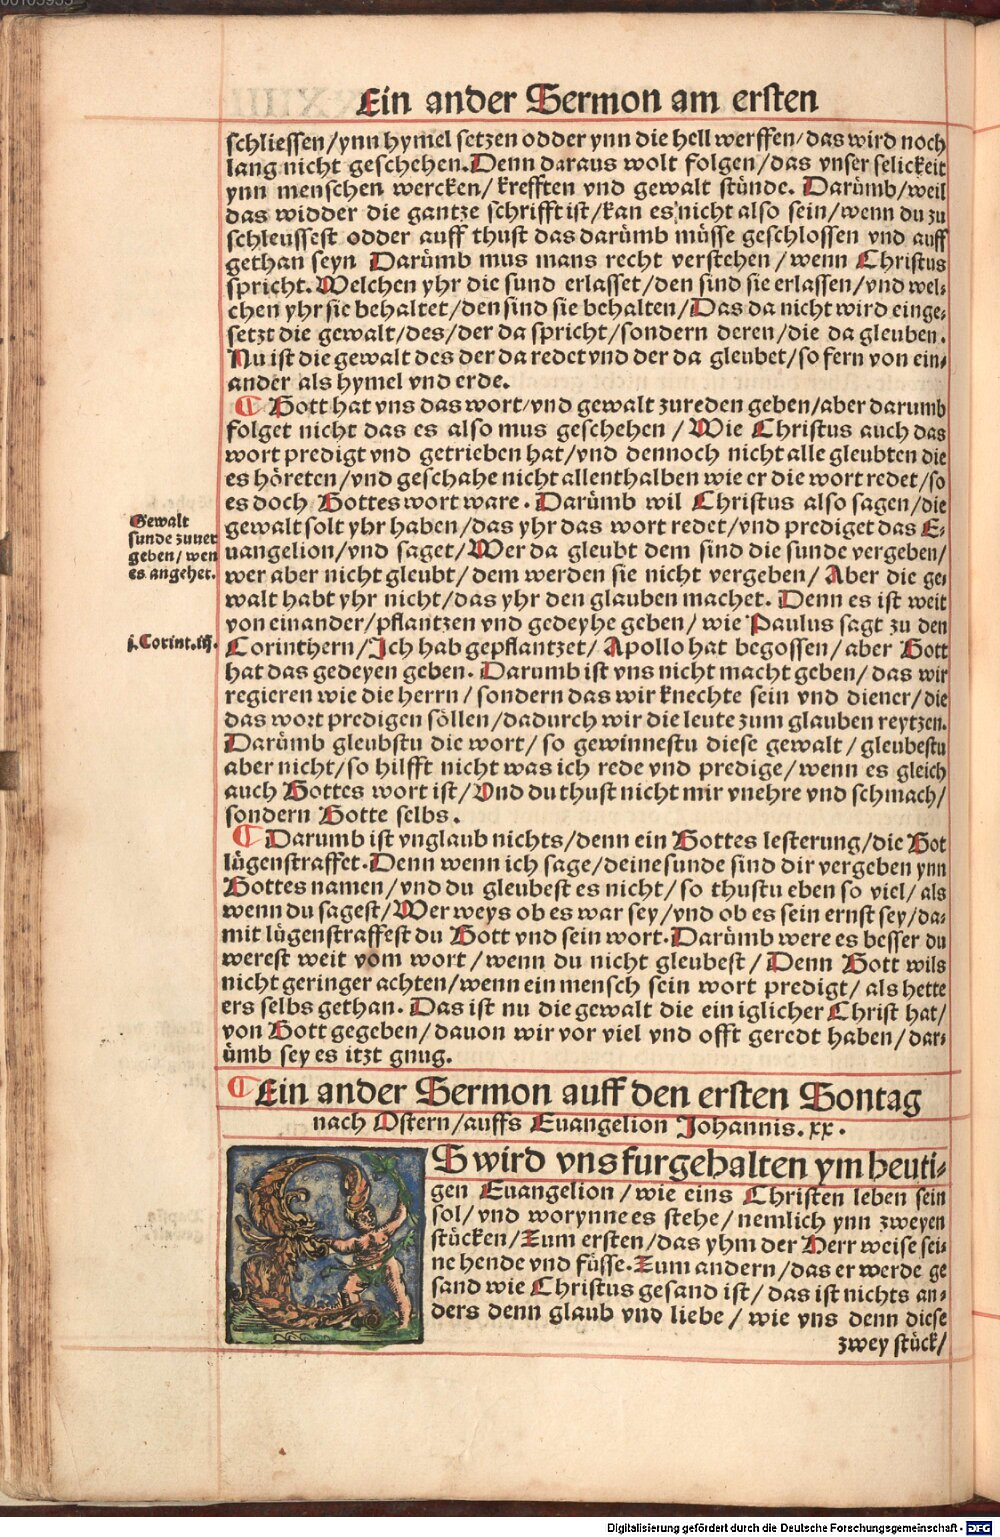 Ein ander Sermon am ersten
schliessen/ynn hymel setzen odder ynn die hell werffen/das wird noch
lang nicht geschehen. Denn daraus wolt folgen/das vnser selickeit
ynn menschen wercken/krefften vnd gewalt stünde. Darümb/weil
das widder die gantze schrifft ist/kan es nicht also sein/wenn du zu
schleussest odder auff thust das darümb müsse geschlossen vnd auff
gethan seyn Darümb mus mans recht verstehen/wenn Christus
spricht. Welchen yhr die sund erlasset/den sind sie erlassen/vnd wel-
chen yhr sie behaltet/den sind sie behalten/Das da nicht wird einge-
setzt die gewalt/des/der da spricht/sondern deren/die da gleuben.
Nu ist die gewalt des der da redet vnd der da gleubet/so fern von ein-
ander als hymel vnd erde.
¶ Gott hat vns das wort/vnd gewalt zureden geben/aber darumb
folget nicht das es also mus geschehen/Wie Christus auch das
wort predigt vnd getrieben hat/vnd dennoch nicht alle gleubten die
es höreten/vnd geschahe nicht allenthalben wie er die wort redet/so
es doch Gottes wort ware. Darümb wil Christus also sagen/die
Gewalt
sunde zuuer
geben/wen
es angehet.
gewalt solt yhr haben/das yhr das wort redet/vnd prediget das E-
uangelion/vnd saget/Wer da gleubt dem sind die sunde vergeben/
wer aber nicht gleubt/dem werden sie nicht vergeben/Aber die ge-
walt habt yhr nicht/das yhr den glauben machet. Denn es ist weit
von einander/pflantzen vnd gedeyhe geben/wie Paulus sagt zu den
j. Corint. iij.
Corinthern/Ich hab gepflantzet/Apollo hat begossen/aber Gott
hat das gedeyen geben. Darumb ist vns nicht macht geben/das wir
regieren wie die herrn/sondern das wir knechte sein vnd diener/die
das wort predigen söllen/dadurch wir die leute zum glauben reytzen.
Darümb gleubstu die wort/so gewinnestu diese gewalt/gleubestu
aber nicht/so hilfft nicht was ich rede vnd predige/wenn es gleich
auch Gottes wort ist/Vnd du thust nicht mir vnehre vnd schmach/
sondern Gotte selbs.
¶ Darumb ist vnglaub nichts/denn ein Gottes lesterung/die Got
lügenstraffet. Denn wenn ich sage/deine sunde sind dir vergeben ynn
Gottes namen/vnd du gleubest es nicht/so thustu eben so viel/als
wenn du sagest/Wer weys ob es war sey/vnd ob es sein ernst sey/da-
mit lügenstraffest du Gott vnd sein wort. Darümb were es besser du
werest weit vom wort/wenn du nicht gleubest/Denn Gott wils
nicht geringer achten/wenn ein mensch sein wort predigt/als hette
ers selbs gethan. Das ist nu die gewalt die ein iglicher Christ hat/
von Gott gegeben/dauon wir vor viel vnd offt geredt haben/dar-
ümb sey es itzt gnug.
¶ Ein ander Sermon auff den ersten Sontag
nach Ostern/auffs Euangelion Johannis. xx.
ES wird vns furgehalten ym heuti-
gen Euangelion/wie eins Christen leben sein
sol/vnd worynne es stehe/nemlich ynn zweyen
stücken/Zum ersten/das yhm der Herr weise sei-
ne hende vnd füsse. Zum andern/das er werde ge
sand wie Christus gesand ist/das ist nichts an-
ders denn glaub vnd liebe/wie vns denn diese
zwey stück/
Digitalisierung gefördert durch die Deutsche Forschungsgemeinschaft - DFG